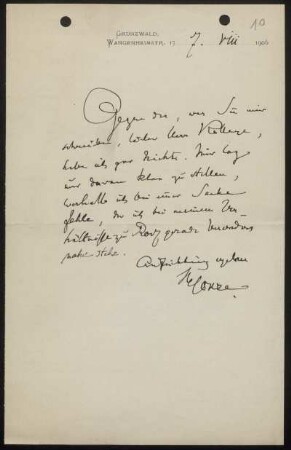 10
GRUNEWALD,
WANGENHEIMSTR. 17
7. VIII 1906
Gegen das, was Sie mir
schreiben, lieber Herr Kollege,
habe ich gar Nichts. Mir lag
nur daran klar zu stellen,
weshalb ich bei einer Sache
fehle, der ich bei meinem Ver-
hältnisse zu Rom gerade besonders
nahe stehe.
ergeben
Conze.